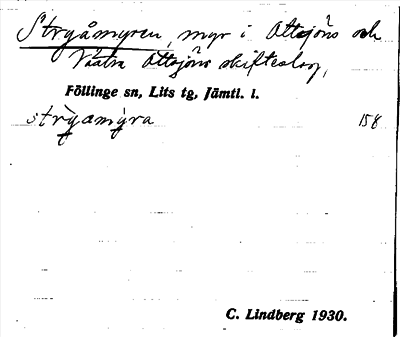 Strgåmyren, myr i Ottsjöns och
Västra Ottsjöns skifteslag,
Föllinge sn, Lits tg, Jämtl. l.
strg̀amýra 158
C. Lindberg 1930.